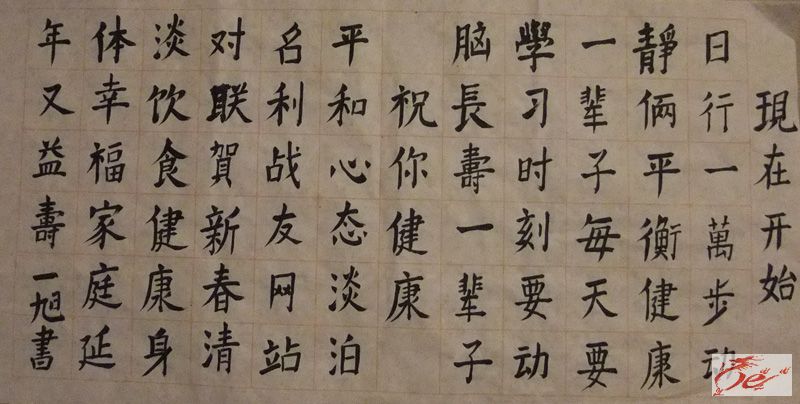 現在开始
日行一萬步动
靜俩平衡健康
一輩子每天要
學习时刻要动
脑長壽一輩子
祝你健康
平和心态淡泊
名利战友网站
对联賀新春清
淡饮食健康身
体幸福家庭延
年又益壽一旭書